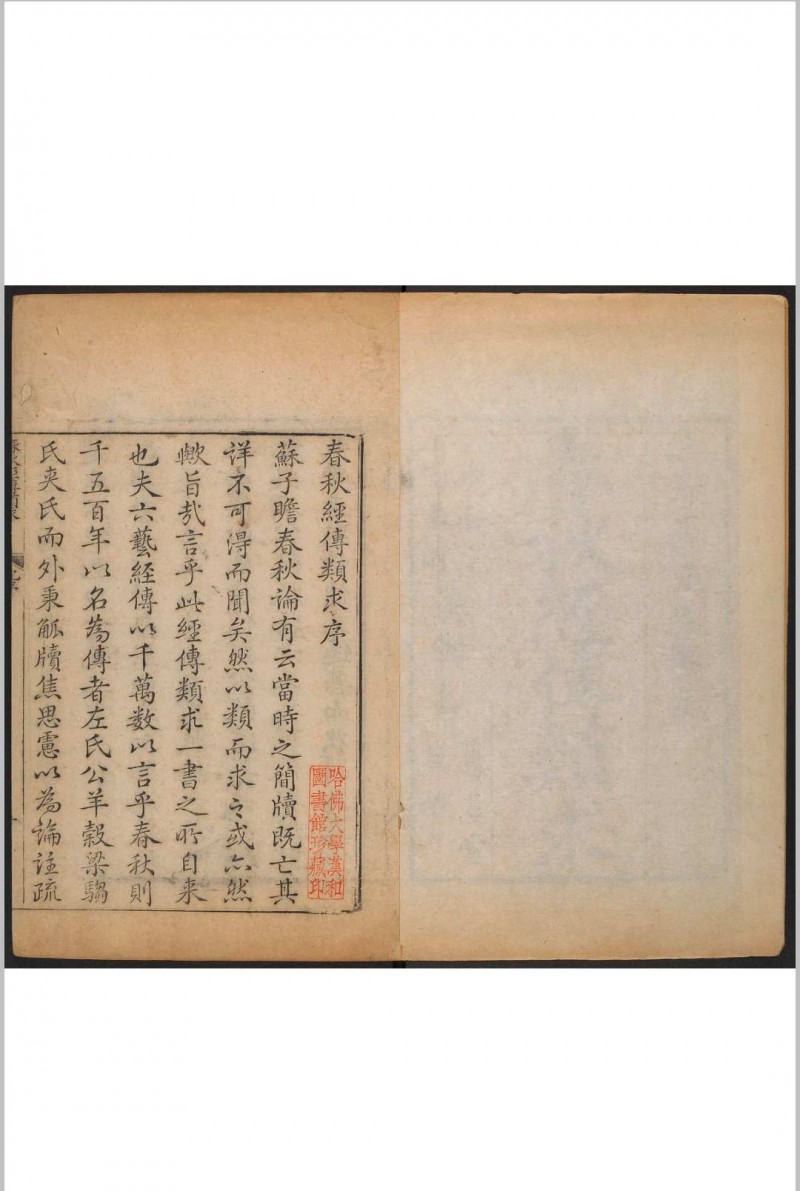 春秋經傳類求序
蘇子瞻春秋論有云當時之簡牘既亡其
詳不可得而聞矣然以類而求之或亦然
歟旨哉言乎此經傳類求一書之所自来
也夫六藝經傳以千萬数以言乎春秋則
千五百年以名為傳者左氏公羊穀梁騶
氏夾氏而外秉觚牘焦思慮以為論註疏
哈佛大學漢和
圖書館珍藏印